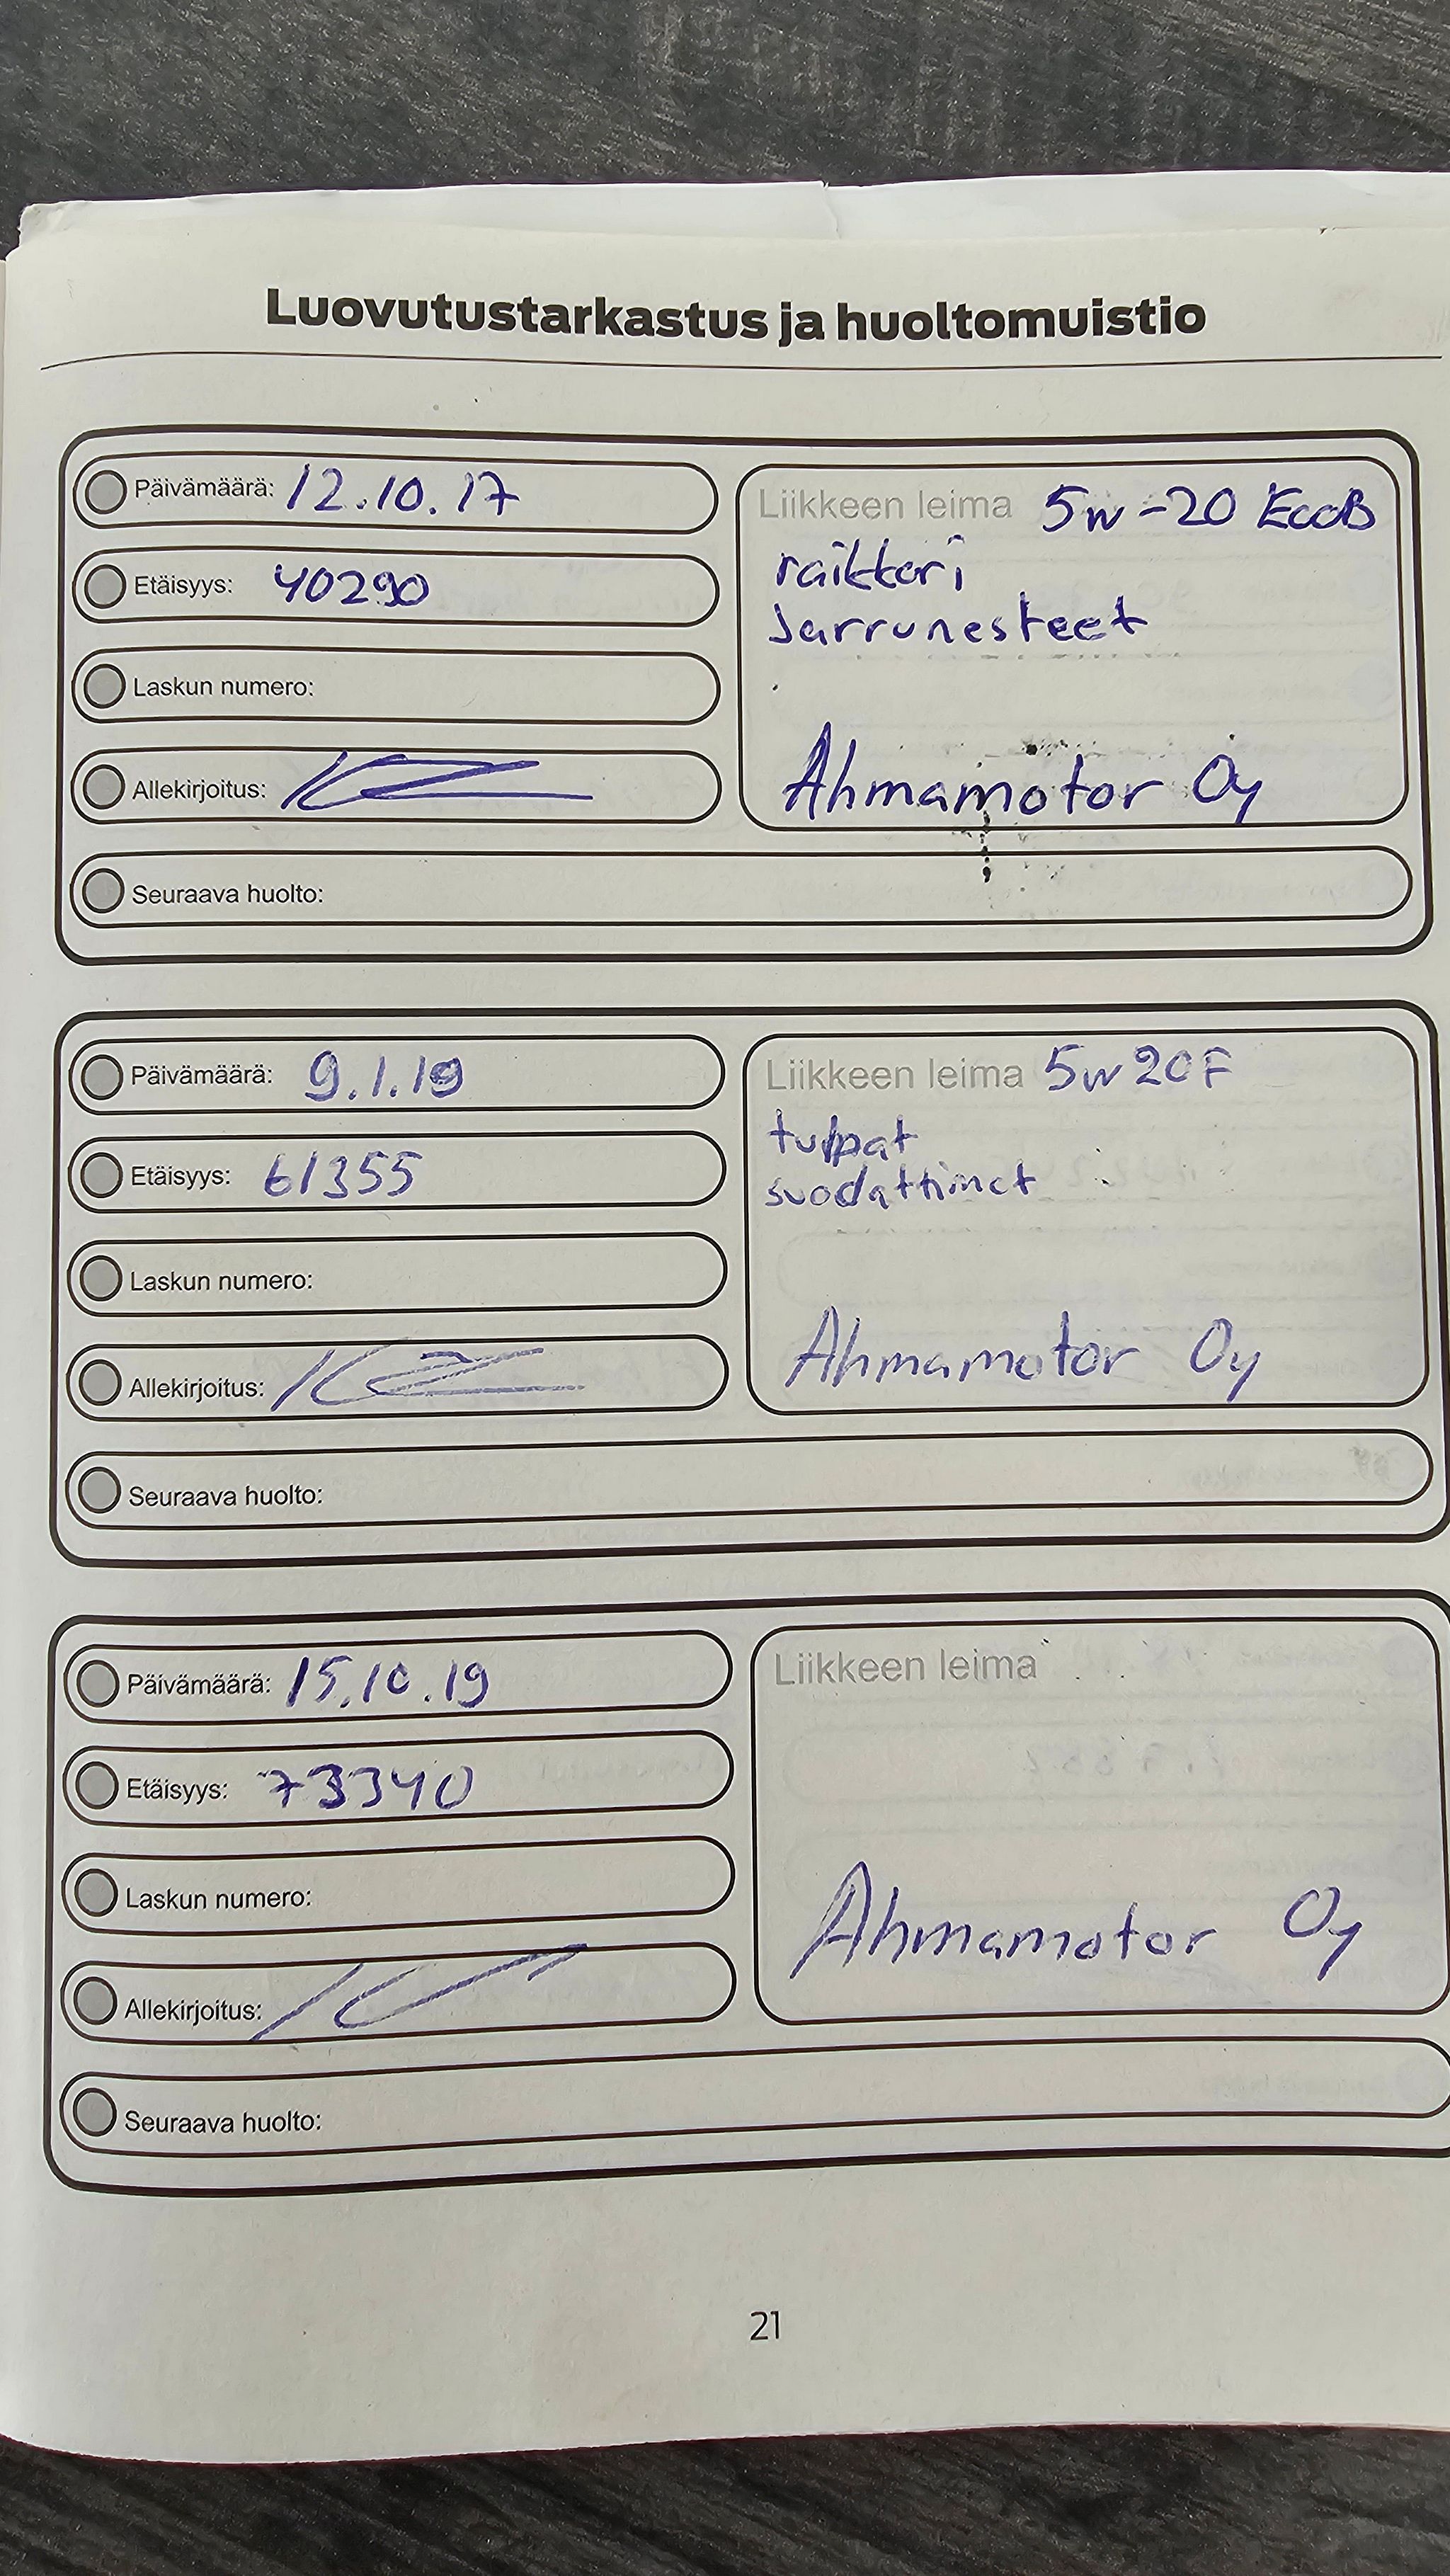 Luovutustarkastus ja huoltomuistio
Päivämäärä: 12.10.17
Etäisyys: 40290
Laskun numero:
Allekirjoitus:
Liikkeen leima 5w-20 EcoB
raikkari
Jarrunesteet
Ahmamotor Oy
Seuraava huolto:
Päivämäärä: 9.1.19
Etäisyys: 61355
Laskun numero:
Allekirjoitus:
Liikkeen leima 5w20F
tulpat
suodattimet
Ahmamotor Oy
Seuraava huolto:
Päivämäärä: 15.10.19
Etäisyys: 73340
Laskun numero:
Allekirjoitus:
Liikkeen leima
Ahmamotor Oy
Seuraava huolto:
21